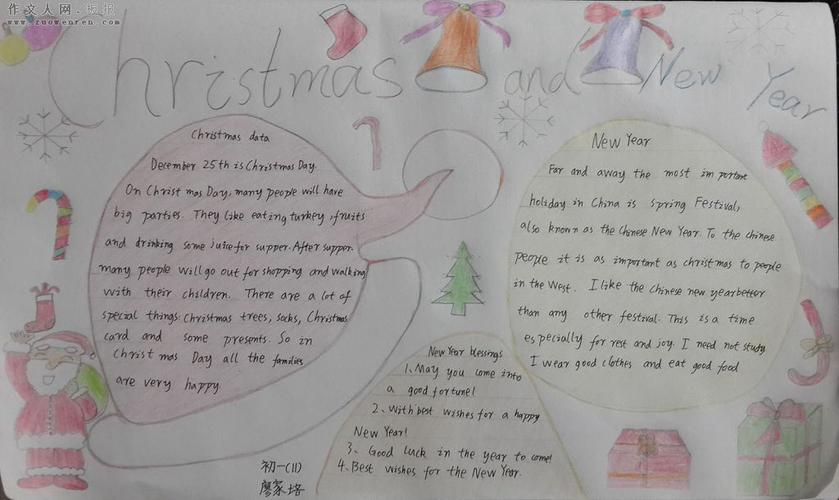 作文人网
www.zuowenren.com
Christmas and New Year
Christmas data
December 25th is Christmas Day.
On Christmas Day, many people will have
big parties. They like eating turkey, fruits
and drinking some juice for supper. After supper.
many people will go out for shopping and walking
with their children. There are a lot of
special things: Christmas trees, socks, Christmas
card and some presents. So in
Christmas Day all the families
are very happy
New Year
Far and away the most important
holiday in China is spring Festival,
also known as the Chinese New Year. To the chinese
people it is as important as christmas to people
in the West. I like the chinese new year better
than any other festival. This is a time
especially for rest and joy. I need not study
I wear good clothes and eat good food
New Year blessings
1、May you come into
a good fortune!
2、With best wishes for a happy
New Year!
3、Good luck in the year to come!
4、Best wishes for the New Year.
初一(11)
廖家培